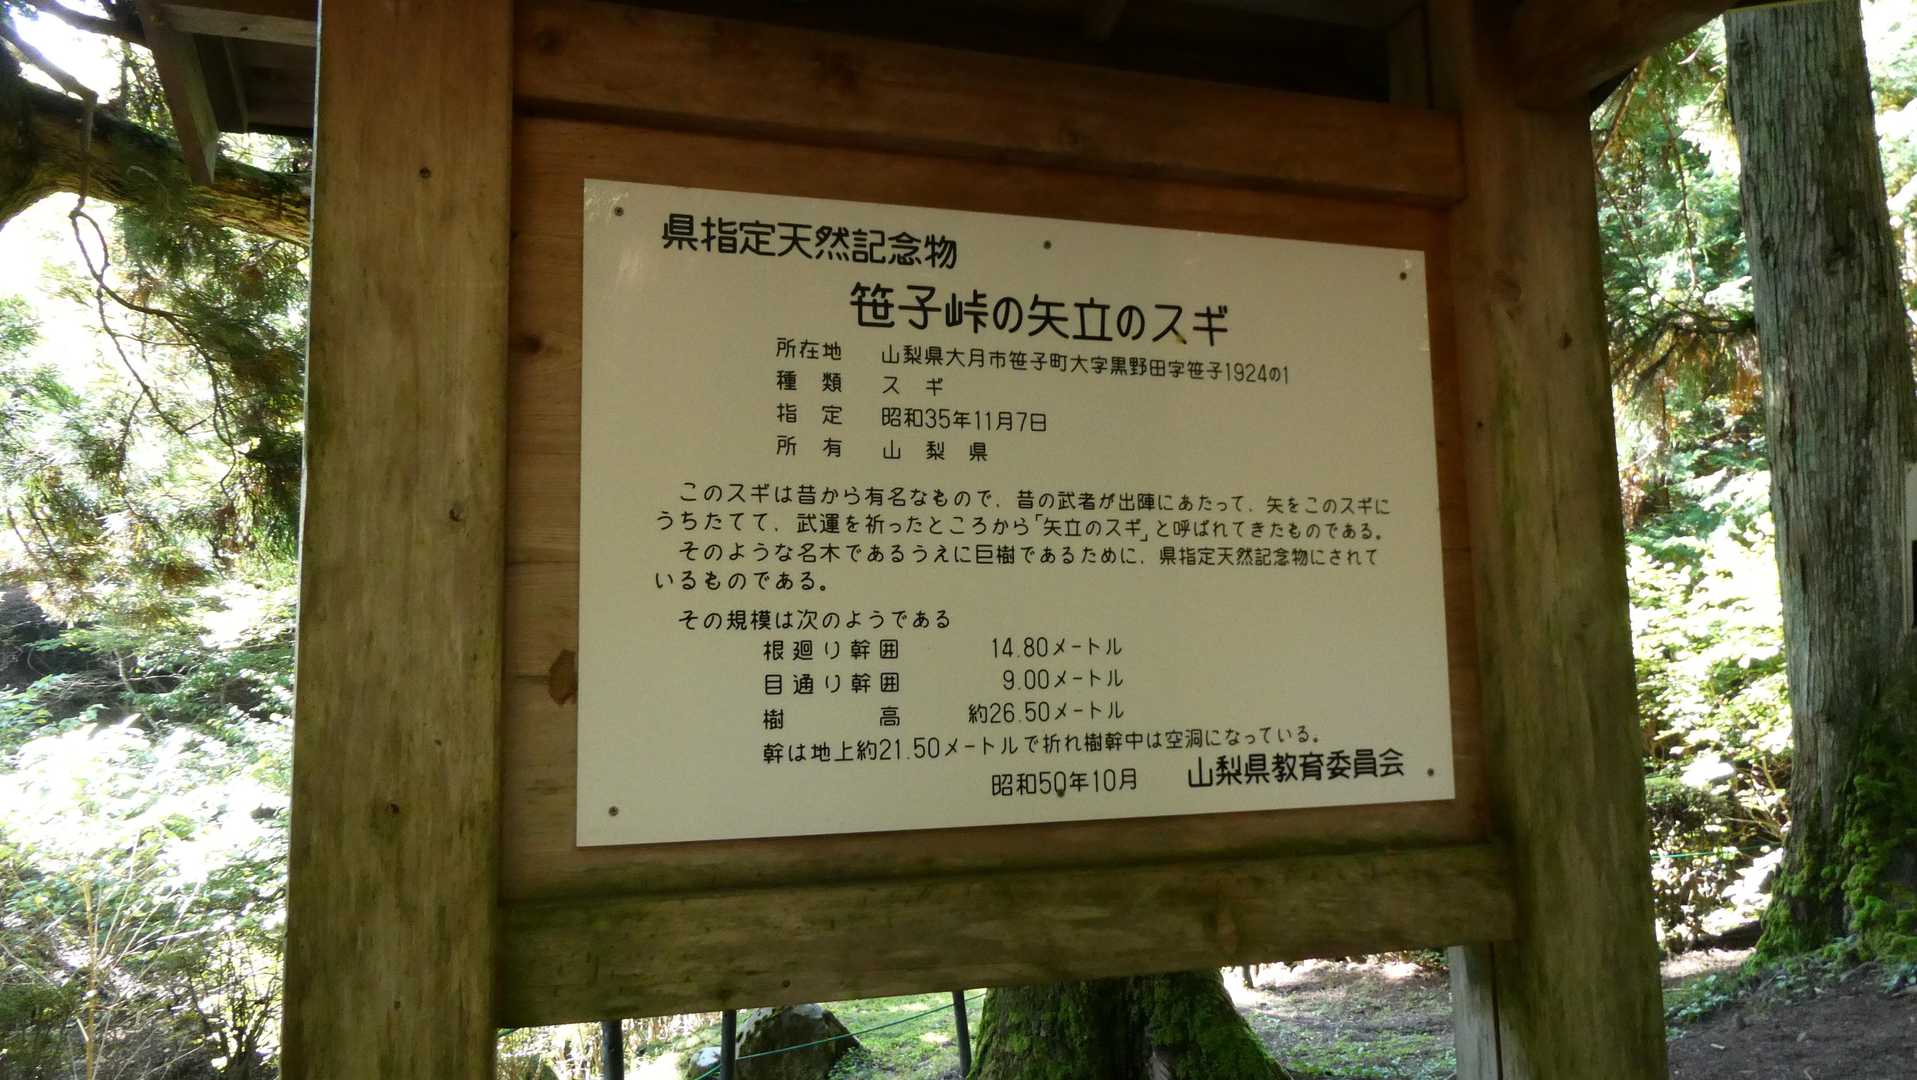 県指定天然記念物
笹子峠の矢立のスギ
所在地 山梨県大月市笹子町大字黒野田字笹子1924の1
種類 スギ
指定 昭和35年11月7日
所有 山梨県
このスギは昔から有名なもので、昔の武者が出陣にあたって、矢をこのスギに
うちたてて、武運を祈ったところから「矢立のスギ」と呼ばれてきたものである。
そのような名木であるうえに巨樹であるために、県指定天然記念物にされて
いるものである。
その規模は次のようである
根廻り幹囲 14.80メートル
目通り幹囲 9.00メートル
樹高 約26.50メートル
幹は地上約21.50メートルで折れ樹幹中は空洞になっている。
昭和50年10月 山梨県教育委員会